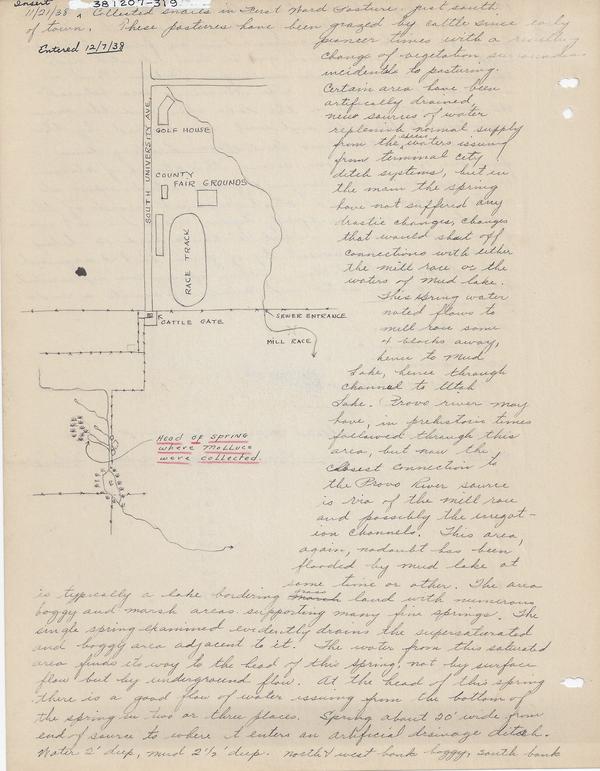 Insert 381207-319
11/21/38 Collected snails in First Ward Pasture. just south
of town. These pastures have been grazed by cattle since early
Entered 12/7/38
pioneer times with a resulting
change of vegetation
incidental to pasturing.
Certain area have been
artifically drained,
new sources of water
replenish normal supply
from the waters issuing
from terminal city
ditch systems, but in
the main the spring
have not suffered any
drastic changes, changes
that would shut off
connections with either
the mill race or the
waters of Mud lake.
This spring water
noted flows to
mill race some
4 blocks away,
hence to Mud
Lake, hence through
channel to Utah
Lake. Provo river may
have, in prehistoric times
followed through this
area, but now the
closest connection to
the Provo River source
is via of the mill race
and possibly the irregat-
ion channels. This area,
again, no doubt has been
flooded by mud lake at
some time or other. The area
is typically a lake bordering land with numerous
boggy and marsh areas supporting many fine springs. The
single spring examined evidently drains the supersaturated
and boggy area adjacent to it. The water from this saturated
area finds its way to the head of this spring, not by surface
flow but by underground flow. At the head of this spring
there is a good flow of water issuing from the bottom of
the spring in two or three places. Spring about 20' wide from
end of source to where it enters an artificial drainage ditch.
Water 2' deep, mud 2 1/2' deep. north & west bank boggy, south bank
SOUTH UNIVERSITY AVE.
GOLF HOUSE
COUNTY
FAIR GROUNDS
RACE TRACK
CATTLE GATE
SEWER ENTRANCE
MILL RACE
Head of spring
where Mollusca
were collected.